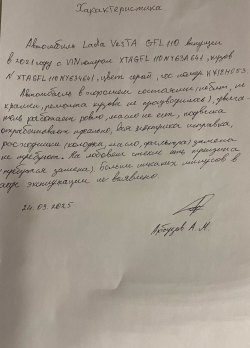 Характеристика
Автомобиль Lada Vesta GFL 110 выпущен
в 2021 году с VIN номером XTAGFL110NY623641, кузов
N XTAGFL110NY623641, цвет серый, гос. номер
Автомобиль в хорошем состоянии (небит, не
крашен, ремонта кузова не производилось), двига
тель работает ровно, масло не ест, подвеска
отрабатывает хорошо, вся электрика исправна,
расходники (колодки, масло, фильтра) замены
не требуют. На лобовом стекле есть трещина
(требуется замена). Больше никаких минусов в
ходе эксплуатации не выявлено.
24.09.2025
Арбузов А. М.